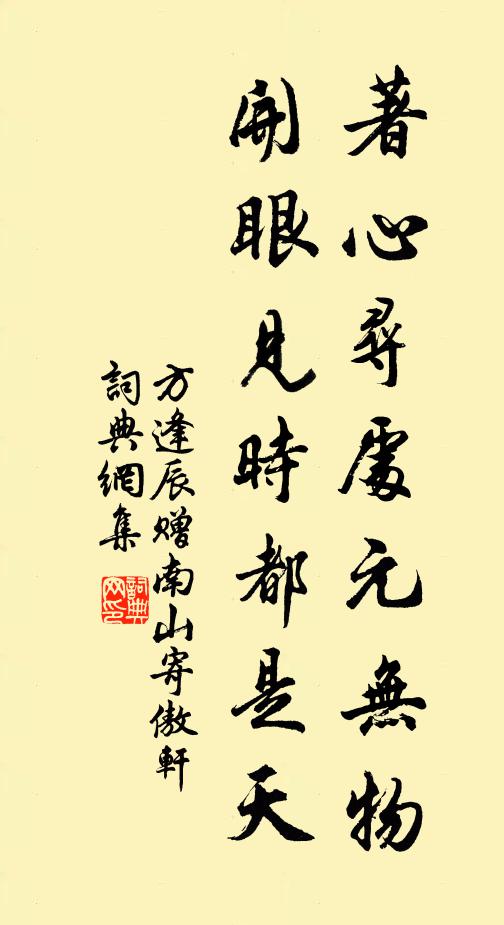 著心尋處元無物
開眼見時都是天
方逢辰贈南山寄傲軒
詞典網集
詞典網印